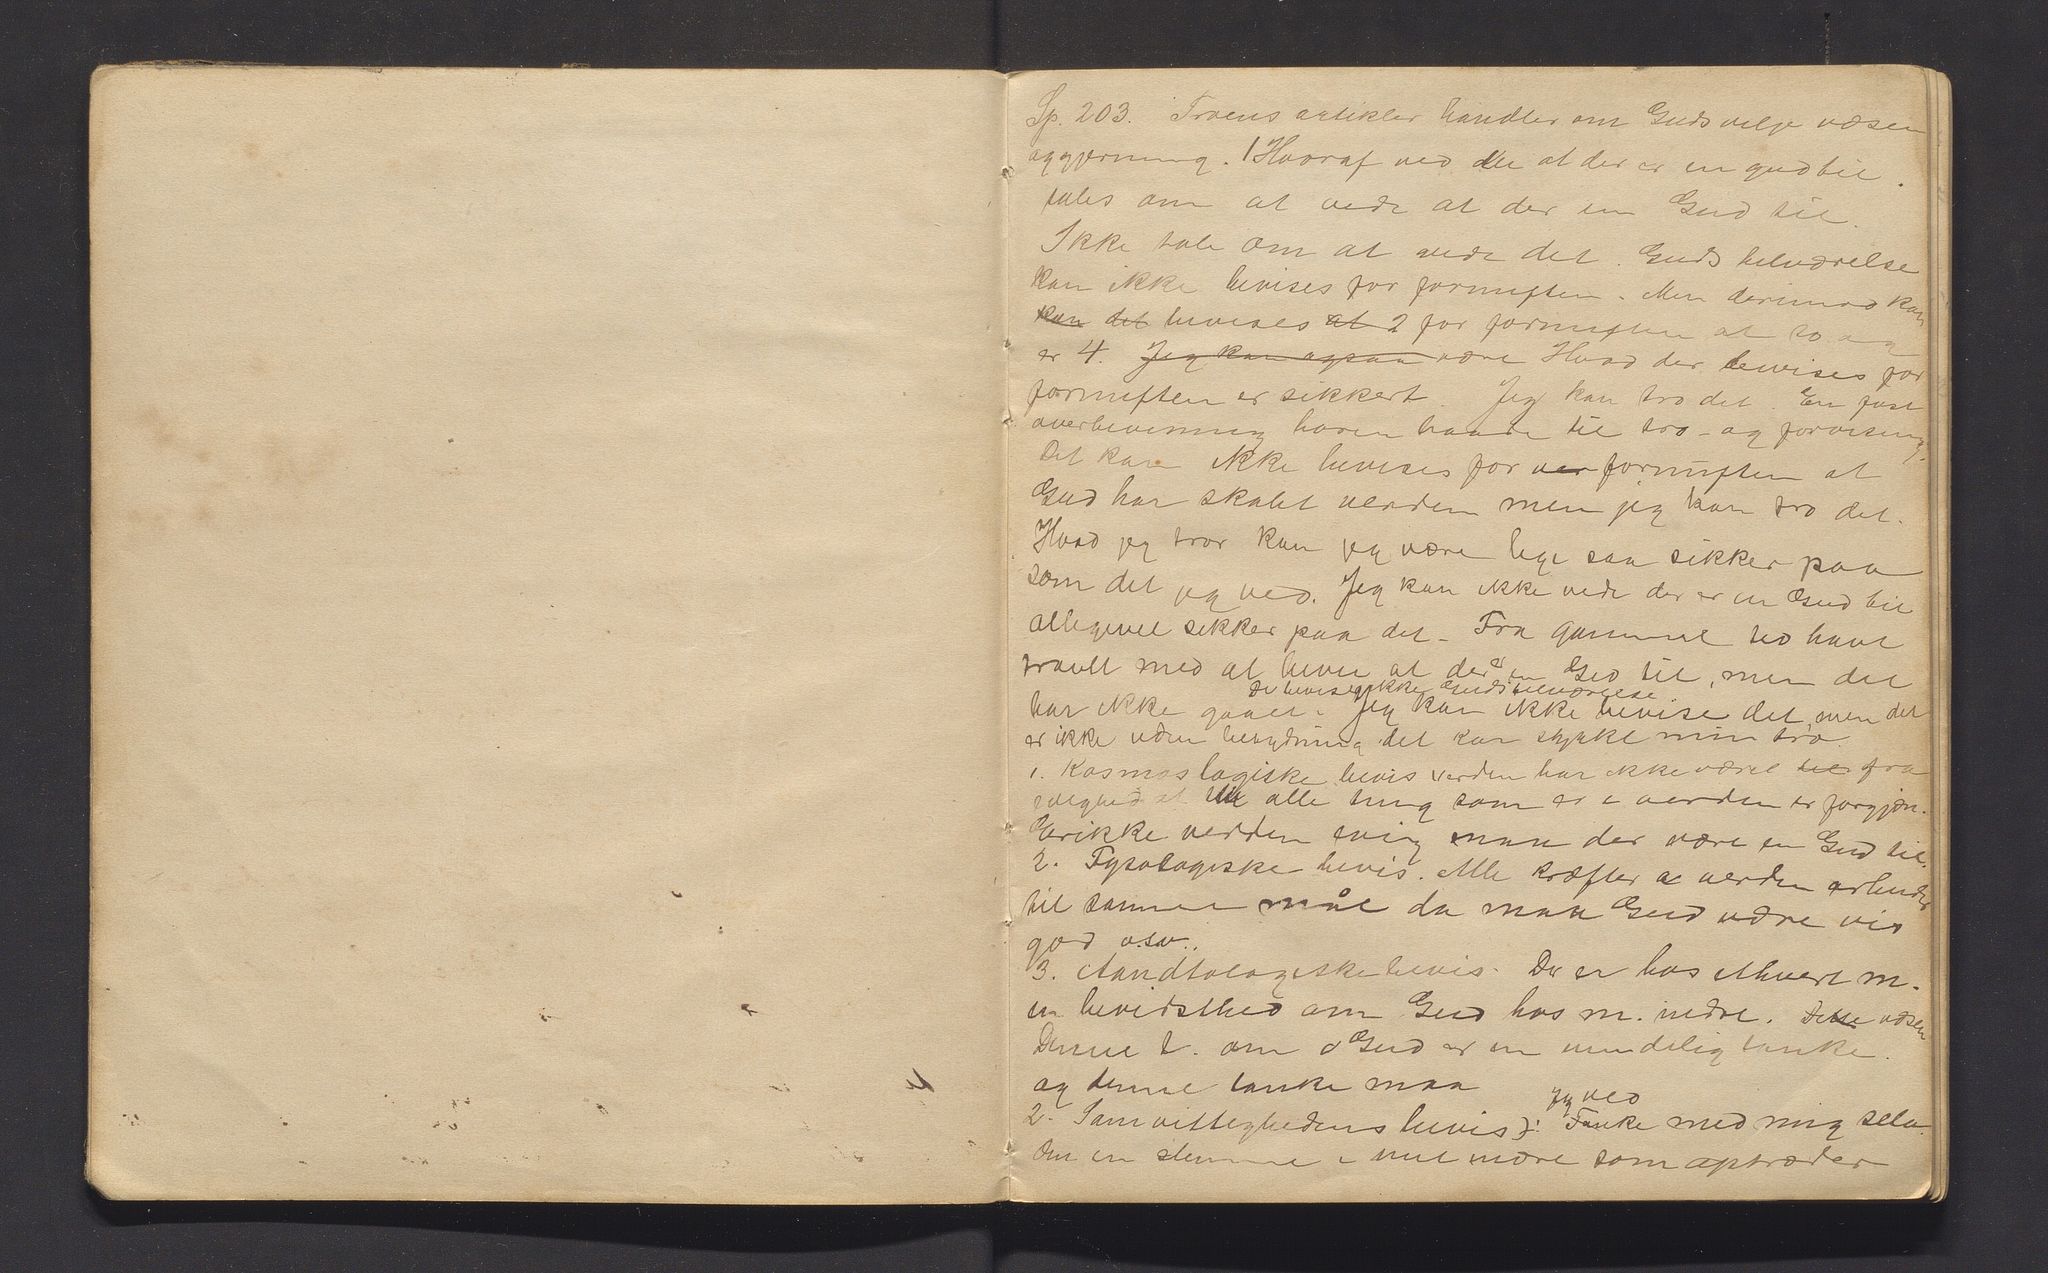 Sp. 203. Troens artikler handler om Guds velje væsen
og gjerning. 1 Hvoraf ved du at der er en gud til.
tales om at vede at der en Gud til.
Ikke tale om at vede det. Guds tilværelse
kan ikke bevises for fornuften. Men derimod kan
kan det bevises at 2 for fornuften at to og
er 4. Jeg kan ogsaa være Hvad der bevises for
fornuften er sikkert. Jeg kan tro det. En fast
overbevisning hører baade til tro og forvisning.
Det kan ikke bevises for ver fornuften at
Gud har skabt verden men jeg kan tro det.
Hvad jeg tror kan jeg være lige saa sikker paa
som det jeg ved. Jeg kan ikke vede der er en Gud til
alligevel sikker paa det - Fra gammel tid havt
travlt med at bevise at der er en Gud til, men det
De beviser ikke Guds tilværelse
har ikke gaaet. Jeg kan ikke bevise det, men det
er ikke uden betydning det kan styrke min tro.
1. Kosmoslogiske bevis verden har ikke været til fra
evighed at alle ting som er i verden er forgjæn.
Er ikke verden evig maa der være en Gud til.
2. Fysologiske bevis. Alle kræfter i verden arbeider
til samme mål da maa Gud være vis
god o.s.v..
3. Aandtologiske bevis. Der er hos ethvert m.
en bevidsthed om Gud hos m. indre. Dette væsen
Denne t. om Gud er en uendelig tanke.
og denne tanke maa
Jeg ved
2. Samvittighedens bevis): Tanke med mig selv.
Om en stemme i mit indre som optræder